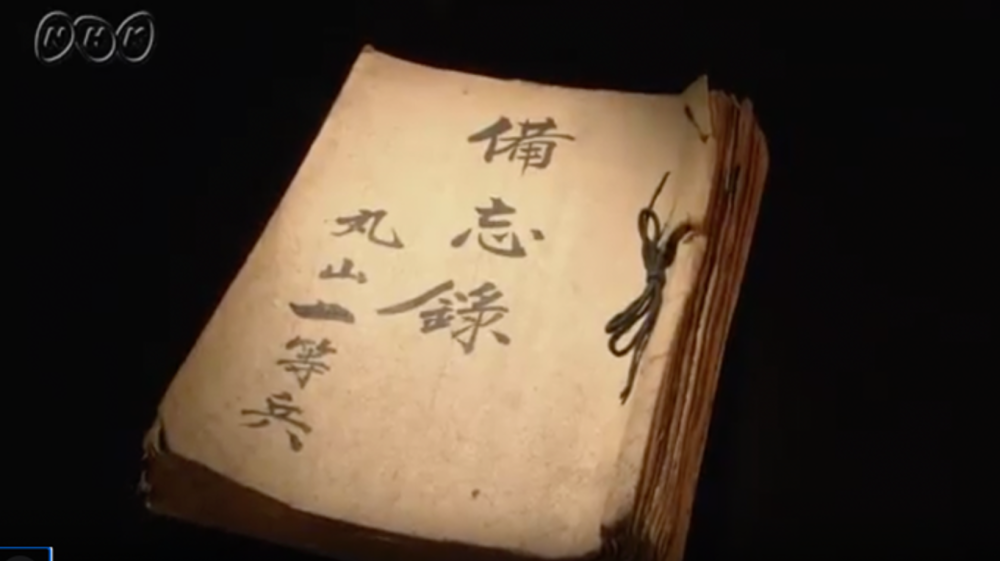 NHK
備忘錄
丸山一等兵